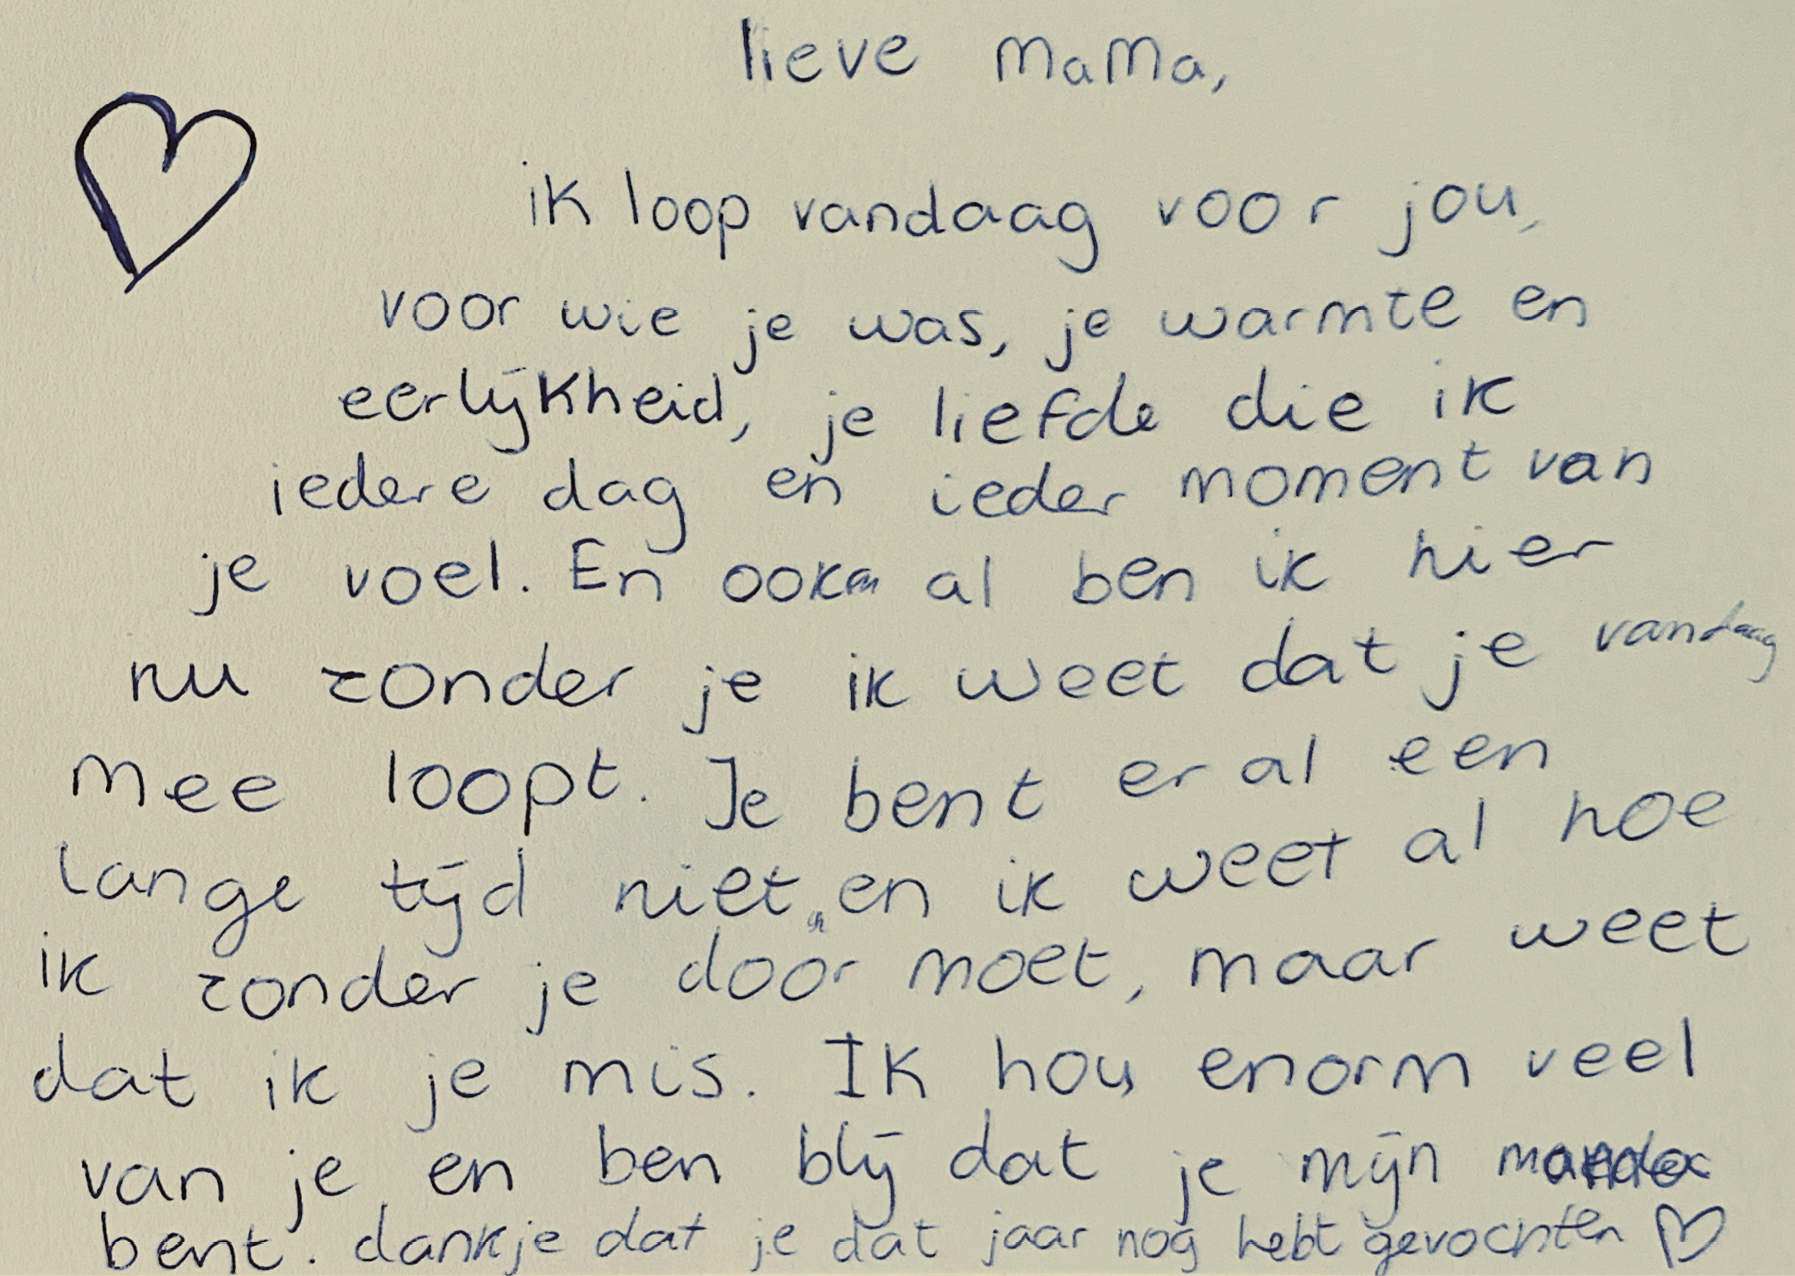 lieve mama,
ik loop vandaag voor jou,
voor wie je was, je warmte en
eerlijkheid, je liefde die ik
iedere dag en ieder moment van
je voel. En ook al ben ik hier
nu zonder je ik weet dat je vandaag
mee loopt. Je bent er al een
lange tijd niet en ik weet al hoe
ik zonder je door moet, maar weet
dat ik je mis. Ik hou enorm veel
van je en ben blij dat je mijn
bent. dankje dat je dat jaar nog hebt gevochten